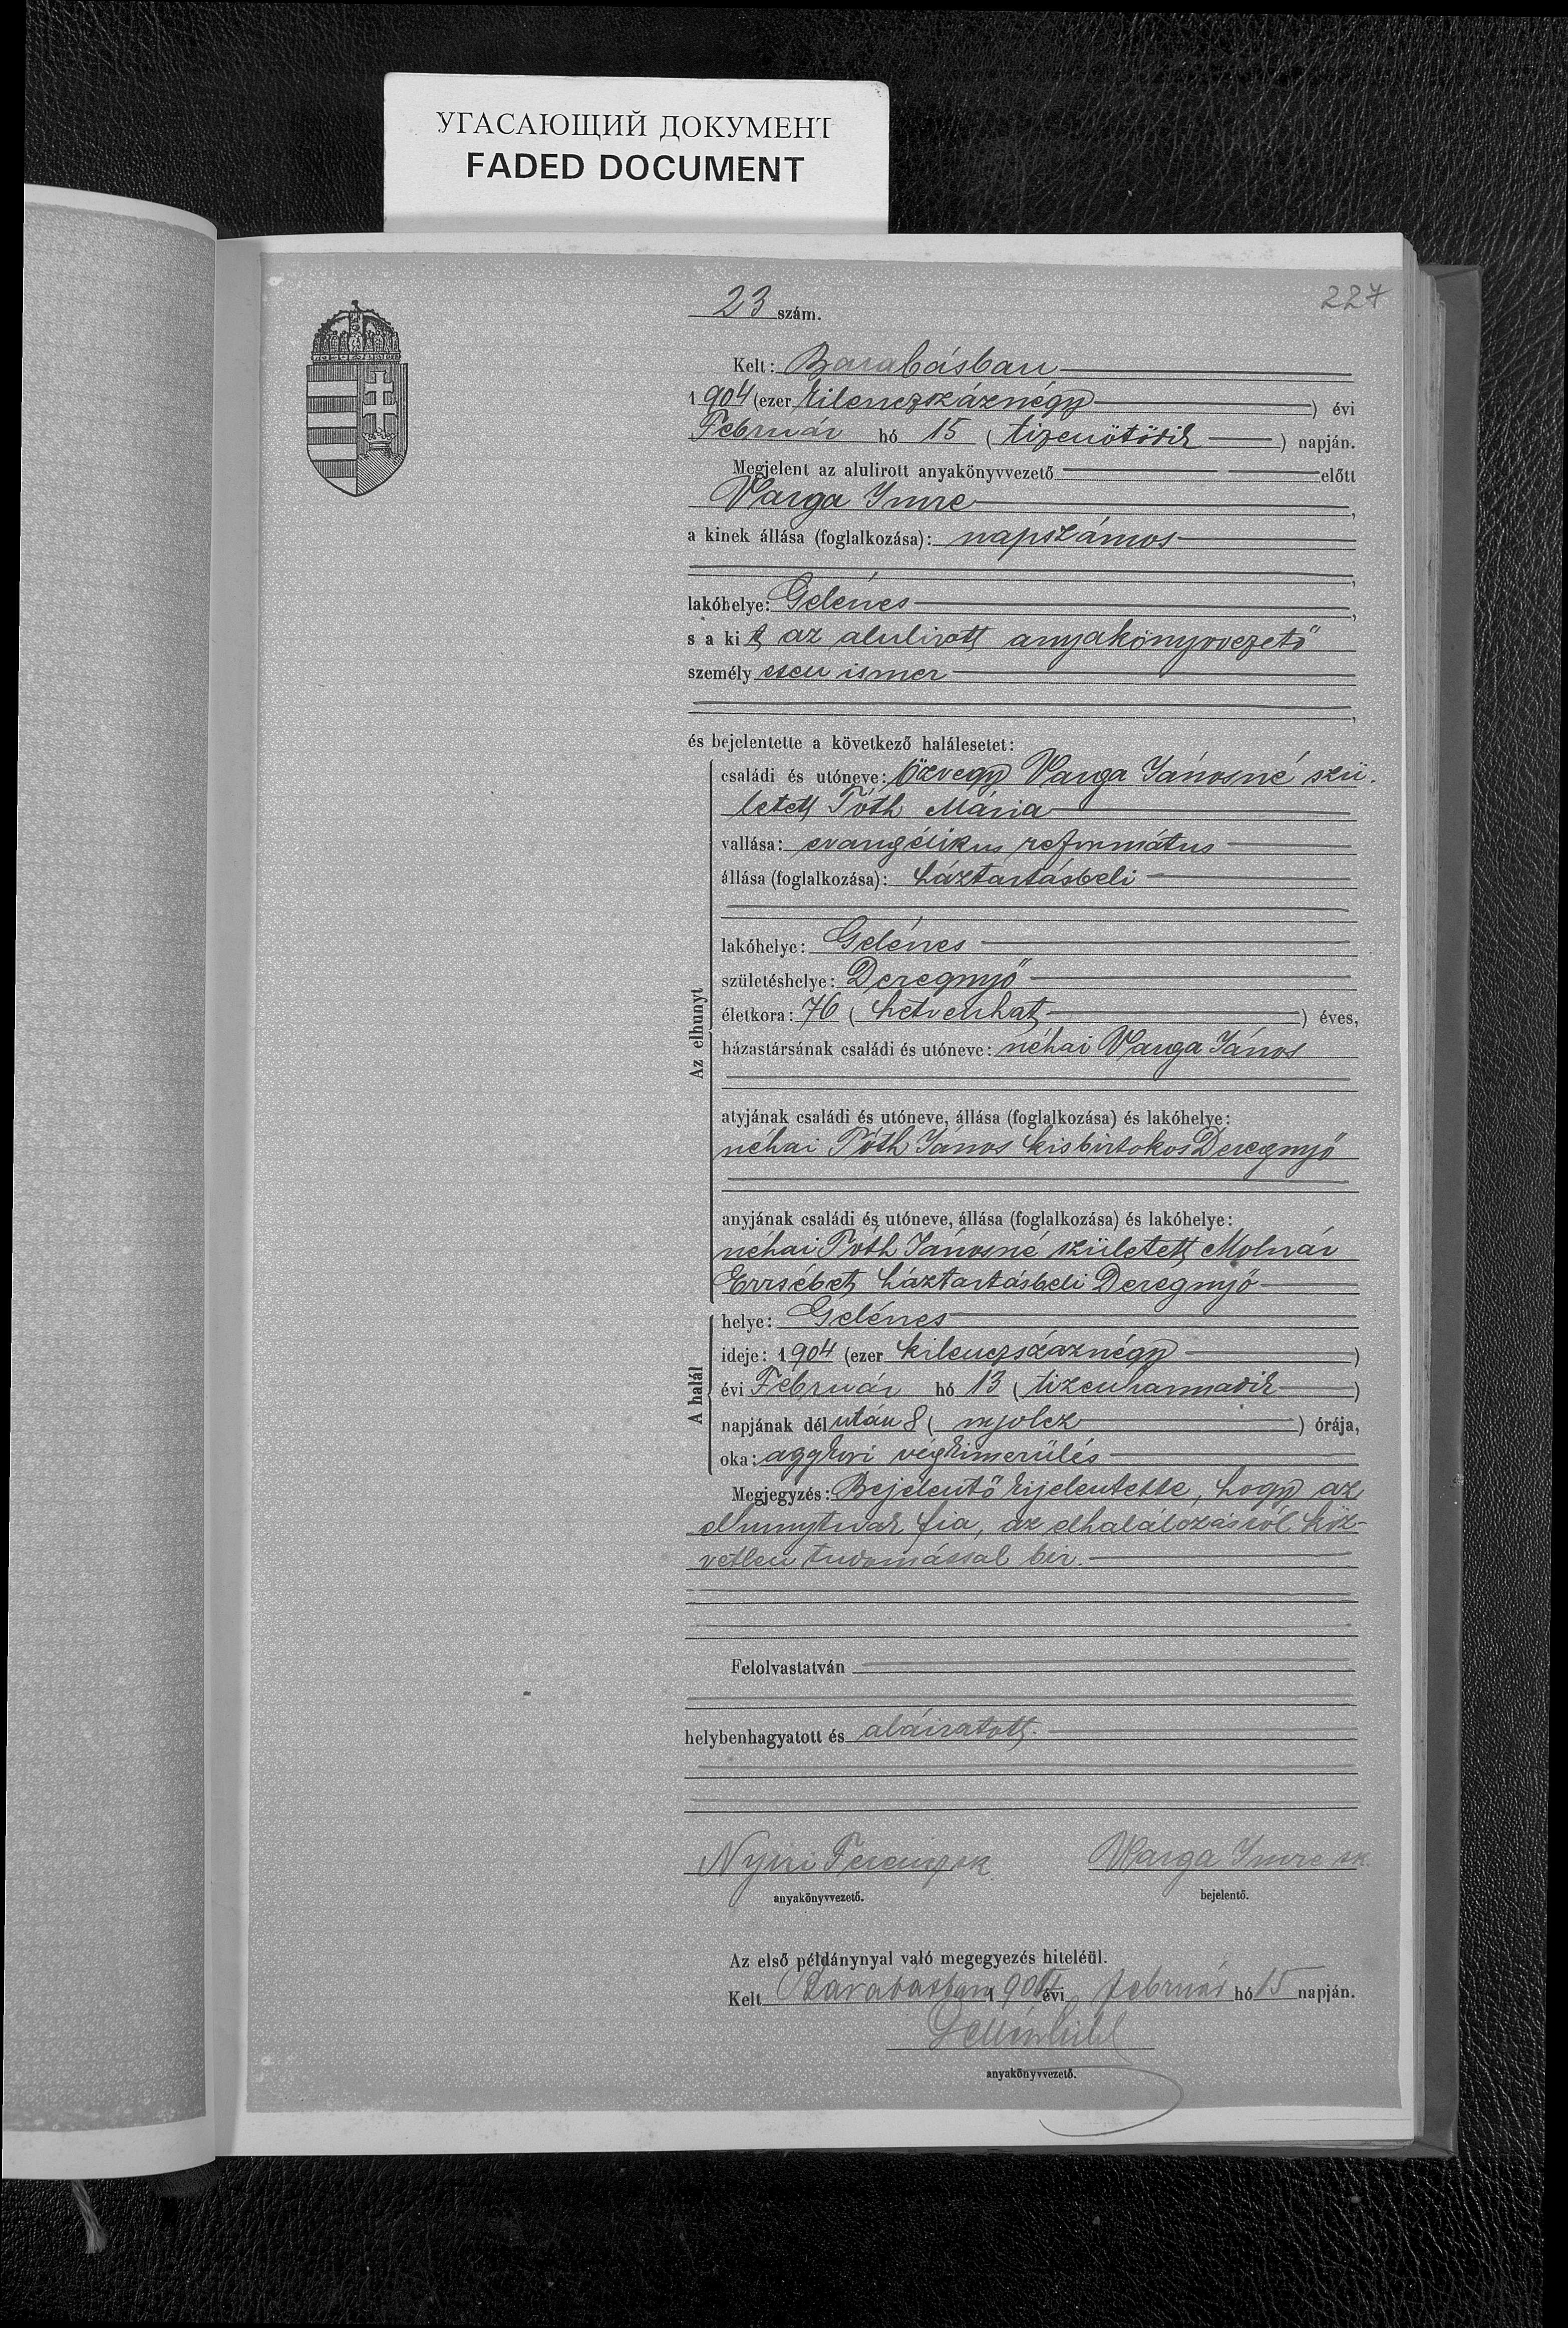 УГАСАЮЩИЙ ДОКУМЕНТ
FADED DOCUMENT
227
23 szám.
Kelt: Barabásban
1904 (ezer kilenczszáznégy) évi
Február hó 15 (tizenötödik) napján.
Megjelent az alulirott anyakönyvvezető előtt
Varga Imre,
a kinek állása (foglalkozása): napszámos
lakóhelye: Gelénes,
s a kit az alulirott anyakönyvvezető
személyesen ismer
és bejelentette a következő halálesetet:
Az elhunyt
családi és utóneve: özvegy Varga Jánosné szü-
letett Tóth Mária
vallása: evangélikus református
állása (foglalkozása): háztartásbeli
lakóhelye: Gelénes
születéshelye: Deregnyő
életkora: 76 (hetvenhat) éves,
házastársának családi és utóneve: néhai Varga János
atyjának családi és utóneve, állása (foglalkozása) és lakóhelye:
néhai Tóth János kisbirtokos Deregnyő
anyjának családi és utóneve, állása (foglalkozása) és lakóhelye:
néhai Tóth Jánosné született Molnár
Erzsébet háztartásbeli Deregnyő
A halál
helye: Gelénes
ideje: 1904 (ezer kilenczszáznégy)
évi Február hó 13 (tizenharmadik)
napjának dél után 8 (nyolcz) órája,
oka: aggkori végkimerülés
Megjegyzés: Bejelentő kijelentette, hogy az
elhunytnak fia, az elhalálozásról köz-
vetlen tudomással bir.
Felolvastatván
helybenhagyatott és aláiratott.
Nyiri Ferencz sk Varga Imre sk.
anyakönyvvezető. bejelentő.
Az első példánynyal való megegyezés hiteléül.
Kelt Barabásban 1904 évi február hó 15 napján.
anyakönyvvezető.